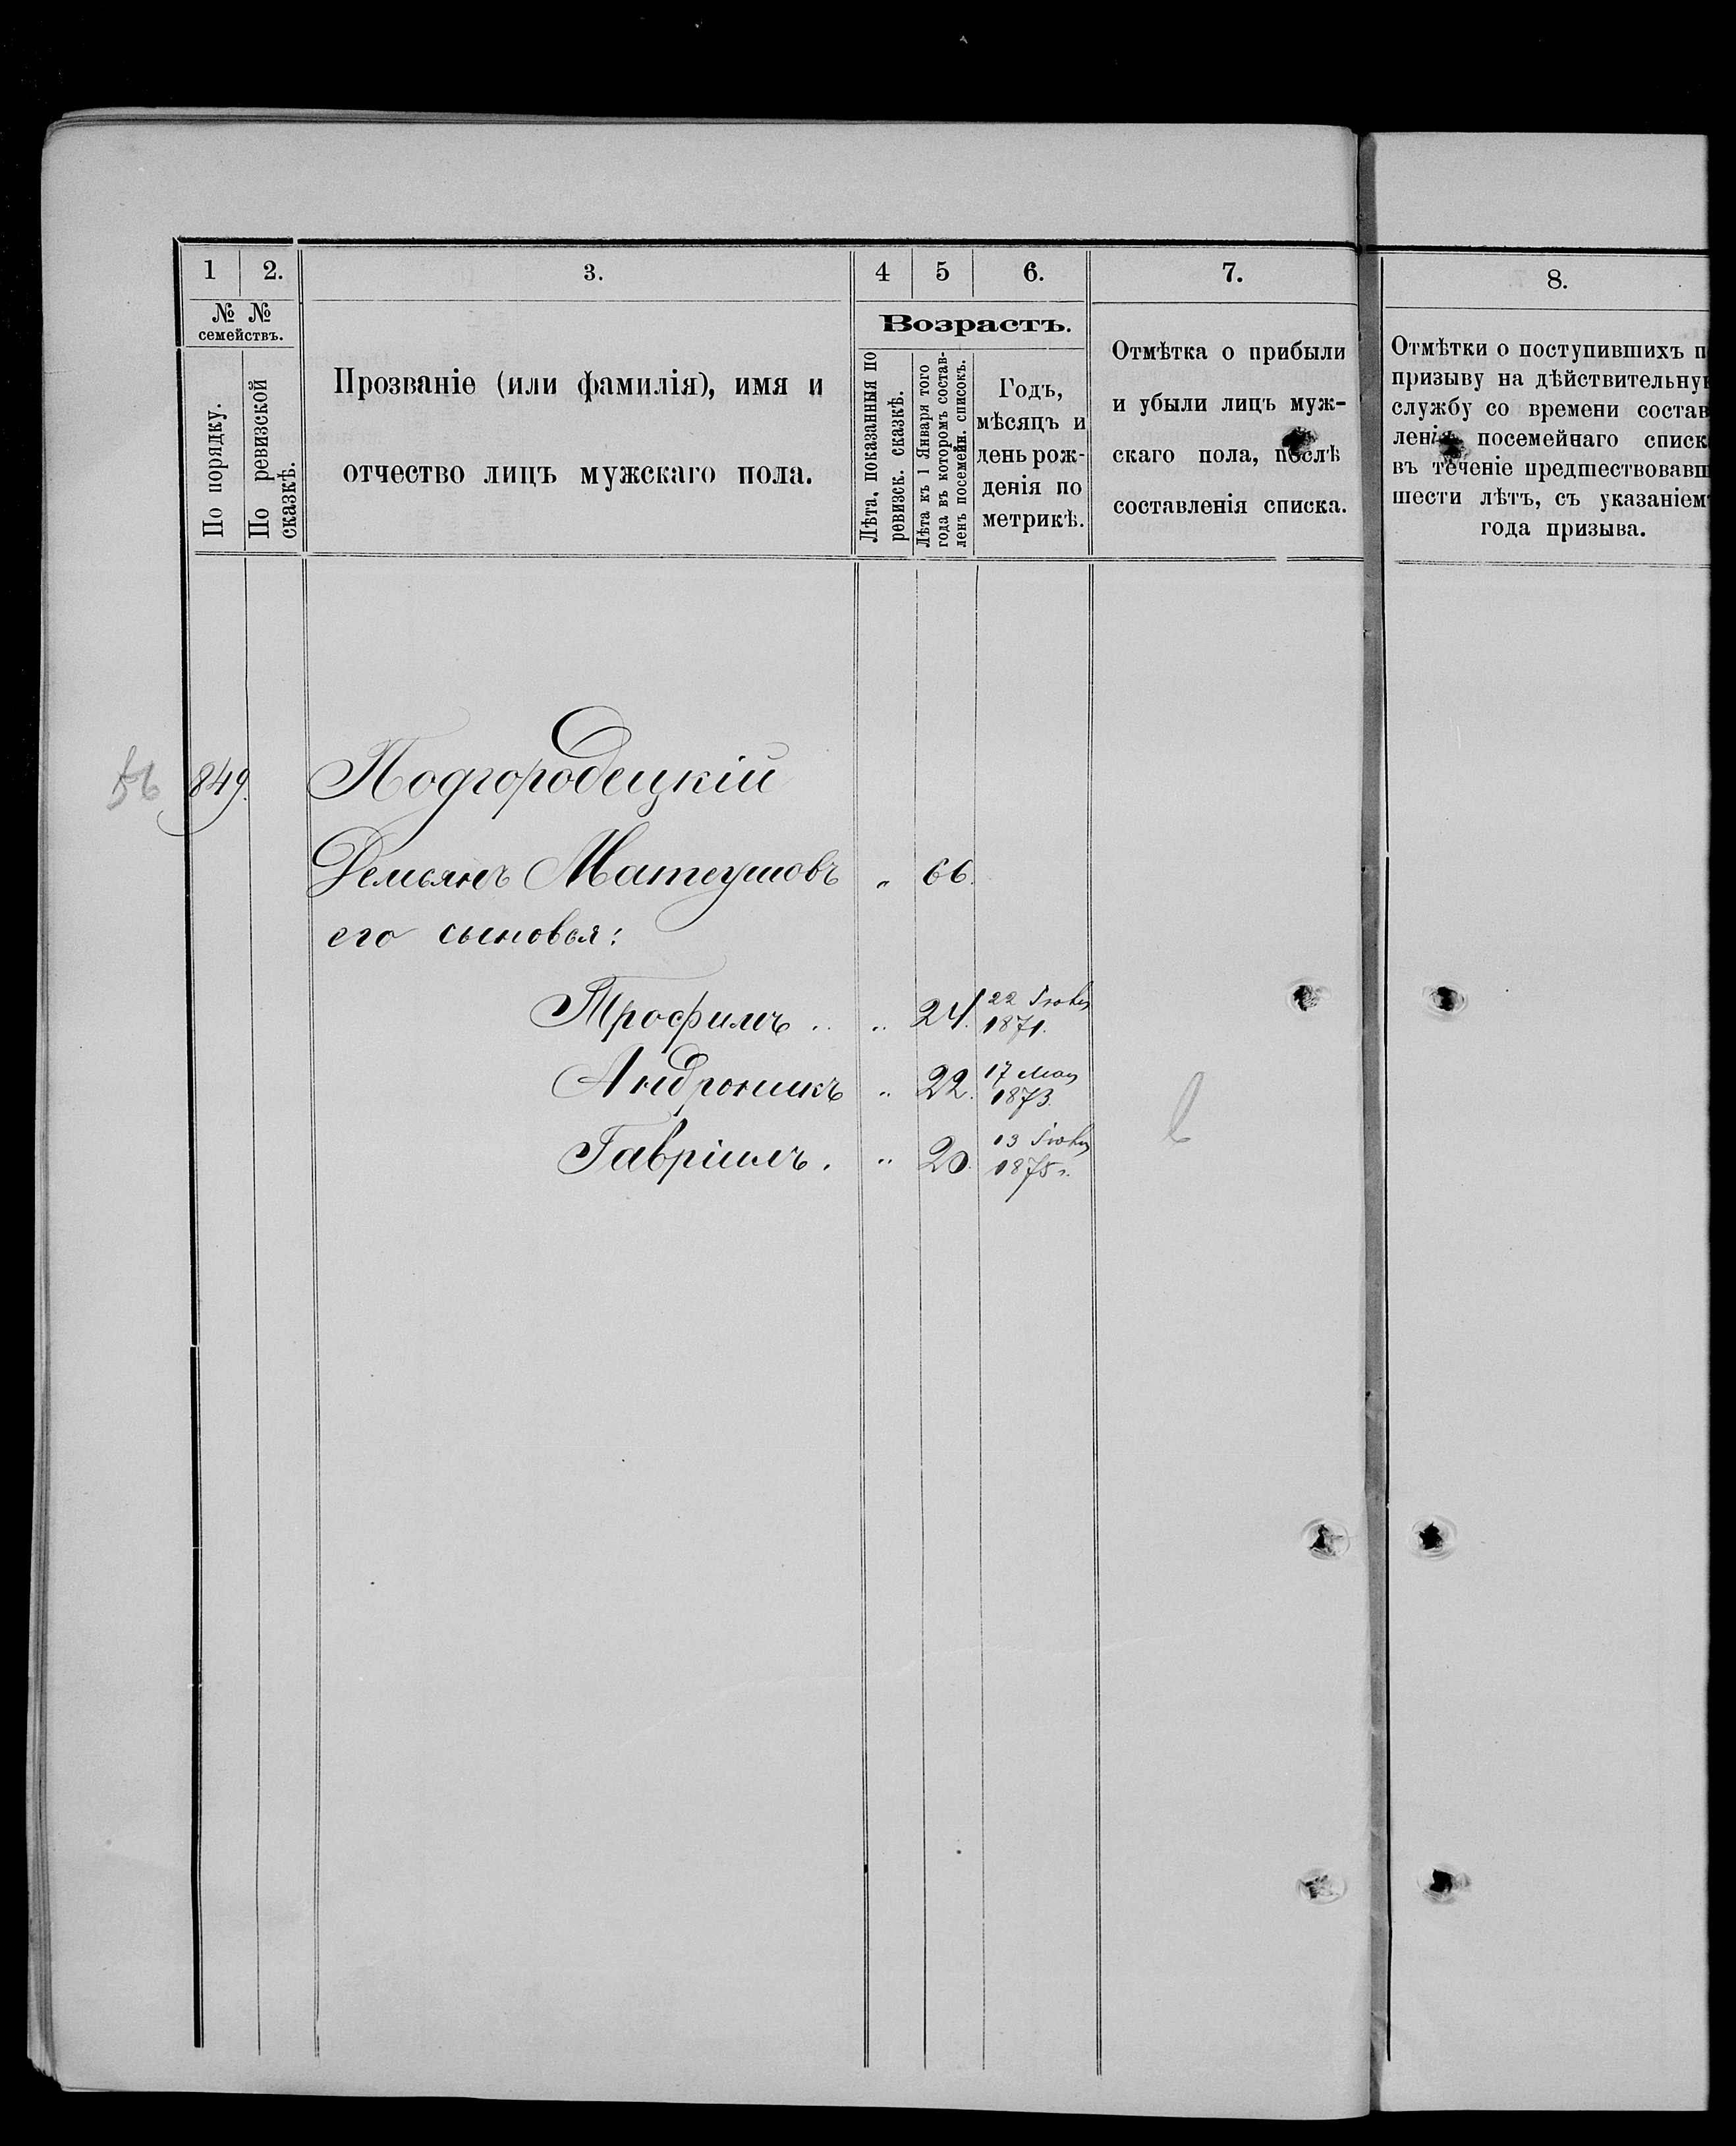 1 2. 3. 4 5 6. 7. 8.
№ №
семействъ.
По порядку.
По ревизской
сказкѣ.
Прозваніе (или фамилія), имя и
отчество лицъ мужскаго пола.
Возрастъ.
Лѣта, показанныя по
ревизск. сказкѣ.
Лѣта къ 1 Января того
года въ которомъ состав-
ленъ посемейн. списокъ.
Годъ,
мѣсяцъ и
день рож-
денія по
метрикѣ.
Отмѣтка о прибыли
и убыли лицъ муж-
скаго пола, послѣ
составленія списка.
Отмѣтки о поступившихъ п
призыву на дѣйствительну
службу со времени состав
леніи посемейнаго списк
въ теченіе предшествовавш
шести лѣтъ, съ указаніем
года призыва.
849. Подгородецкій
Демьянъ Матеушовъ " 66.
его сыновья:
Трофимъ .. " 24. 22 Іюля
1871.
Андроникъ " 22. 17 Мая
1873.
Гавріилъ . " 20. 13 Іюля
1875 г.